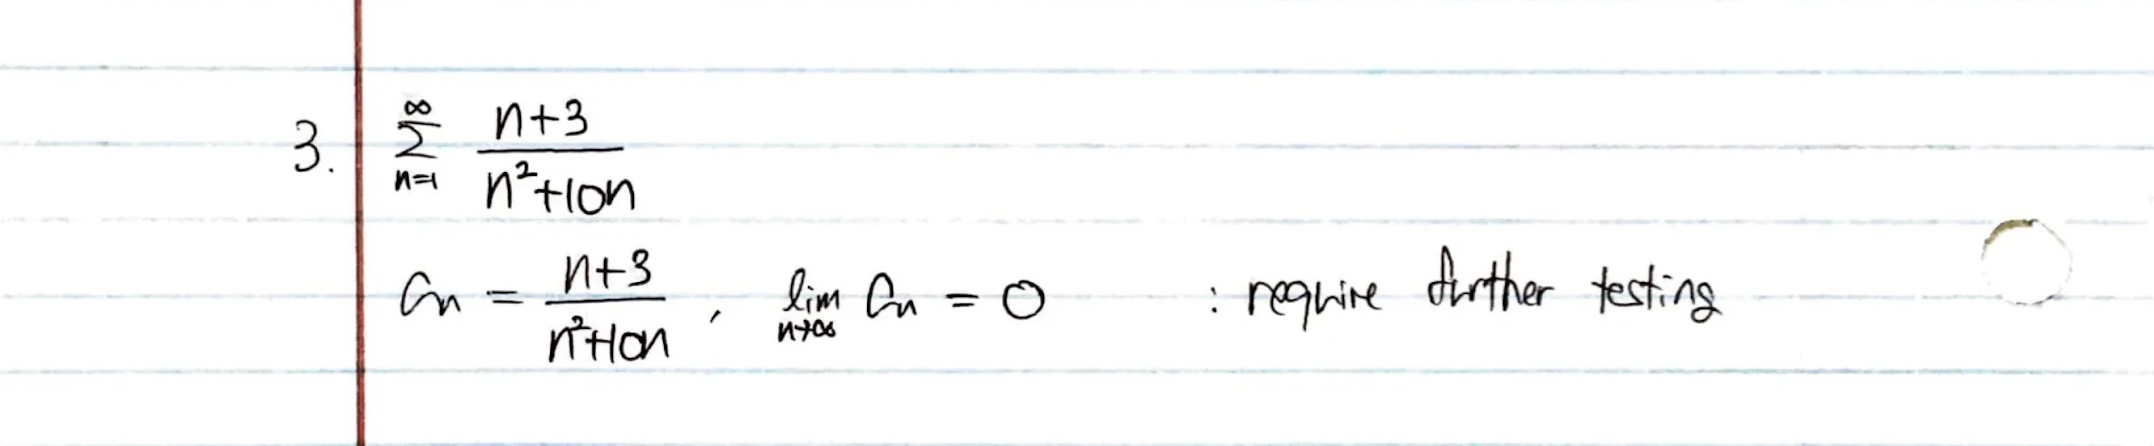 3. $\sum_{n=1}^{\infty} \frac{n+3}{n^2+10n}$
$a_n = \frac{n+3}{n^2+10n}$, $\lim_{n \to \infty} a_n = 0$ : require further testing